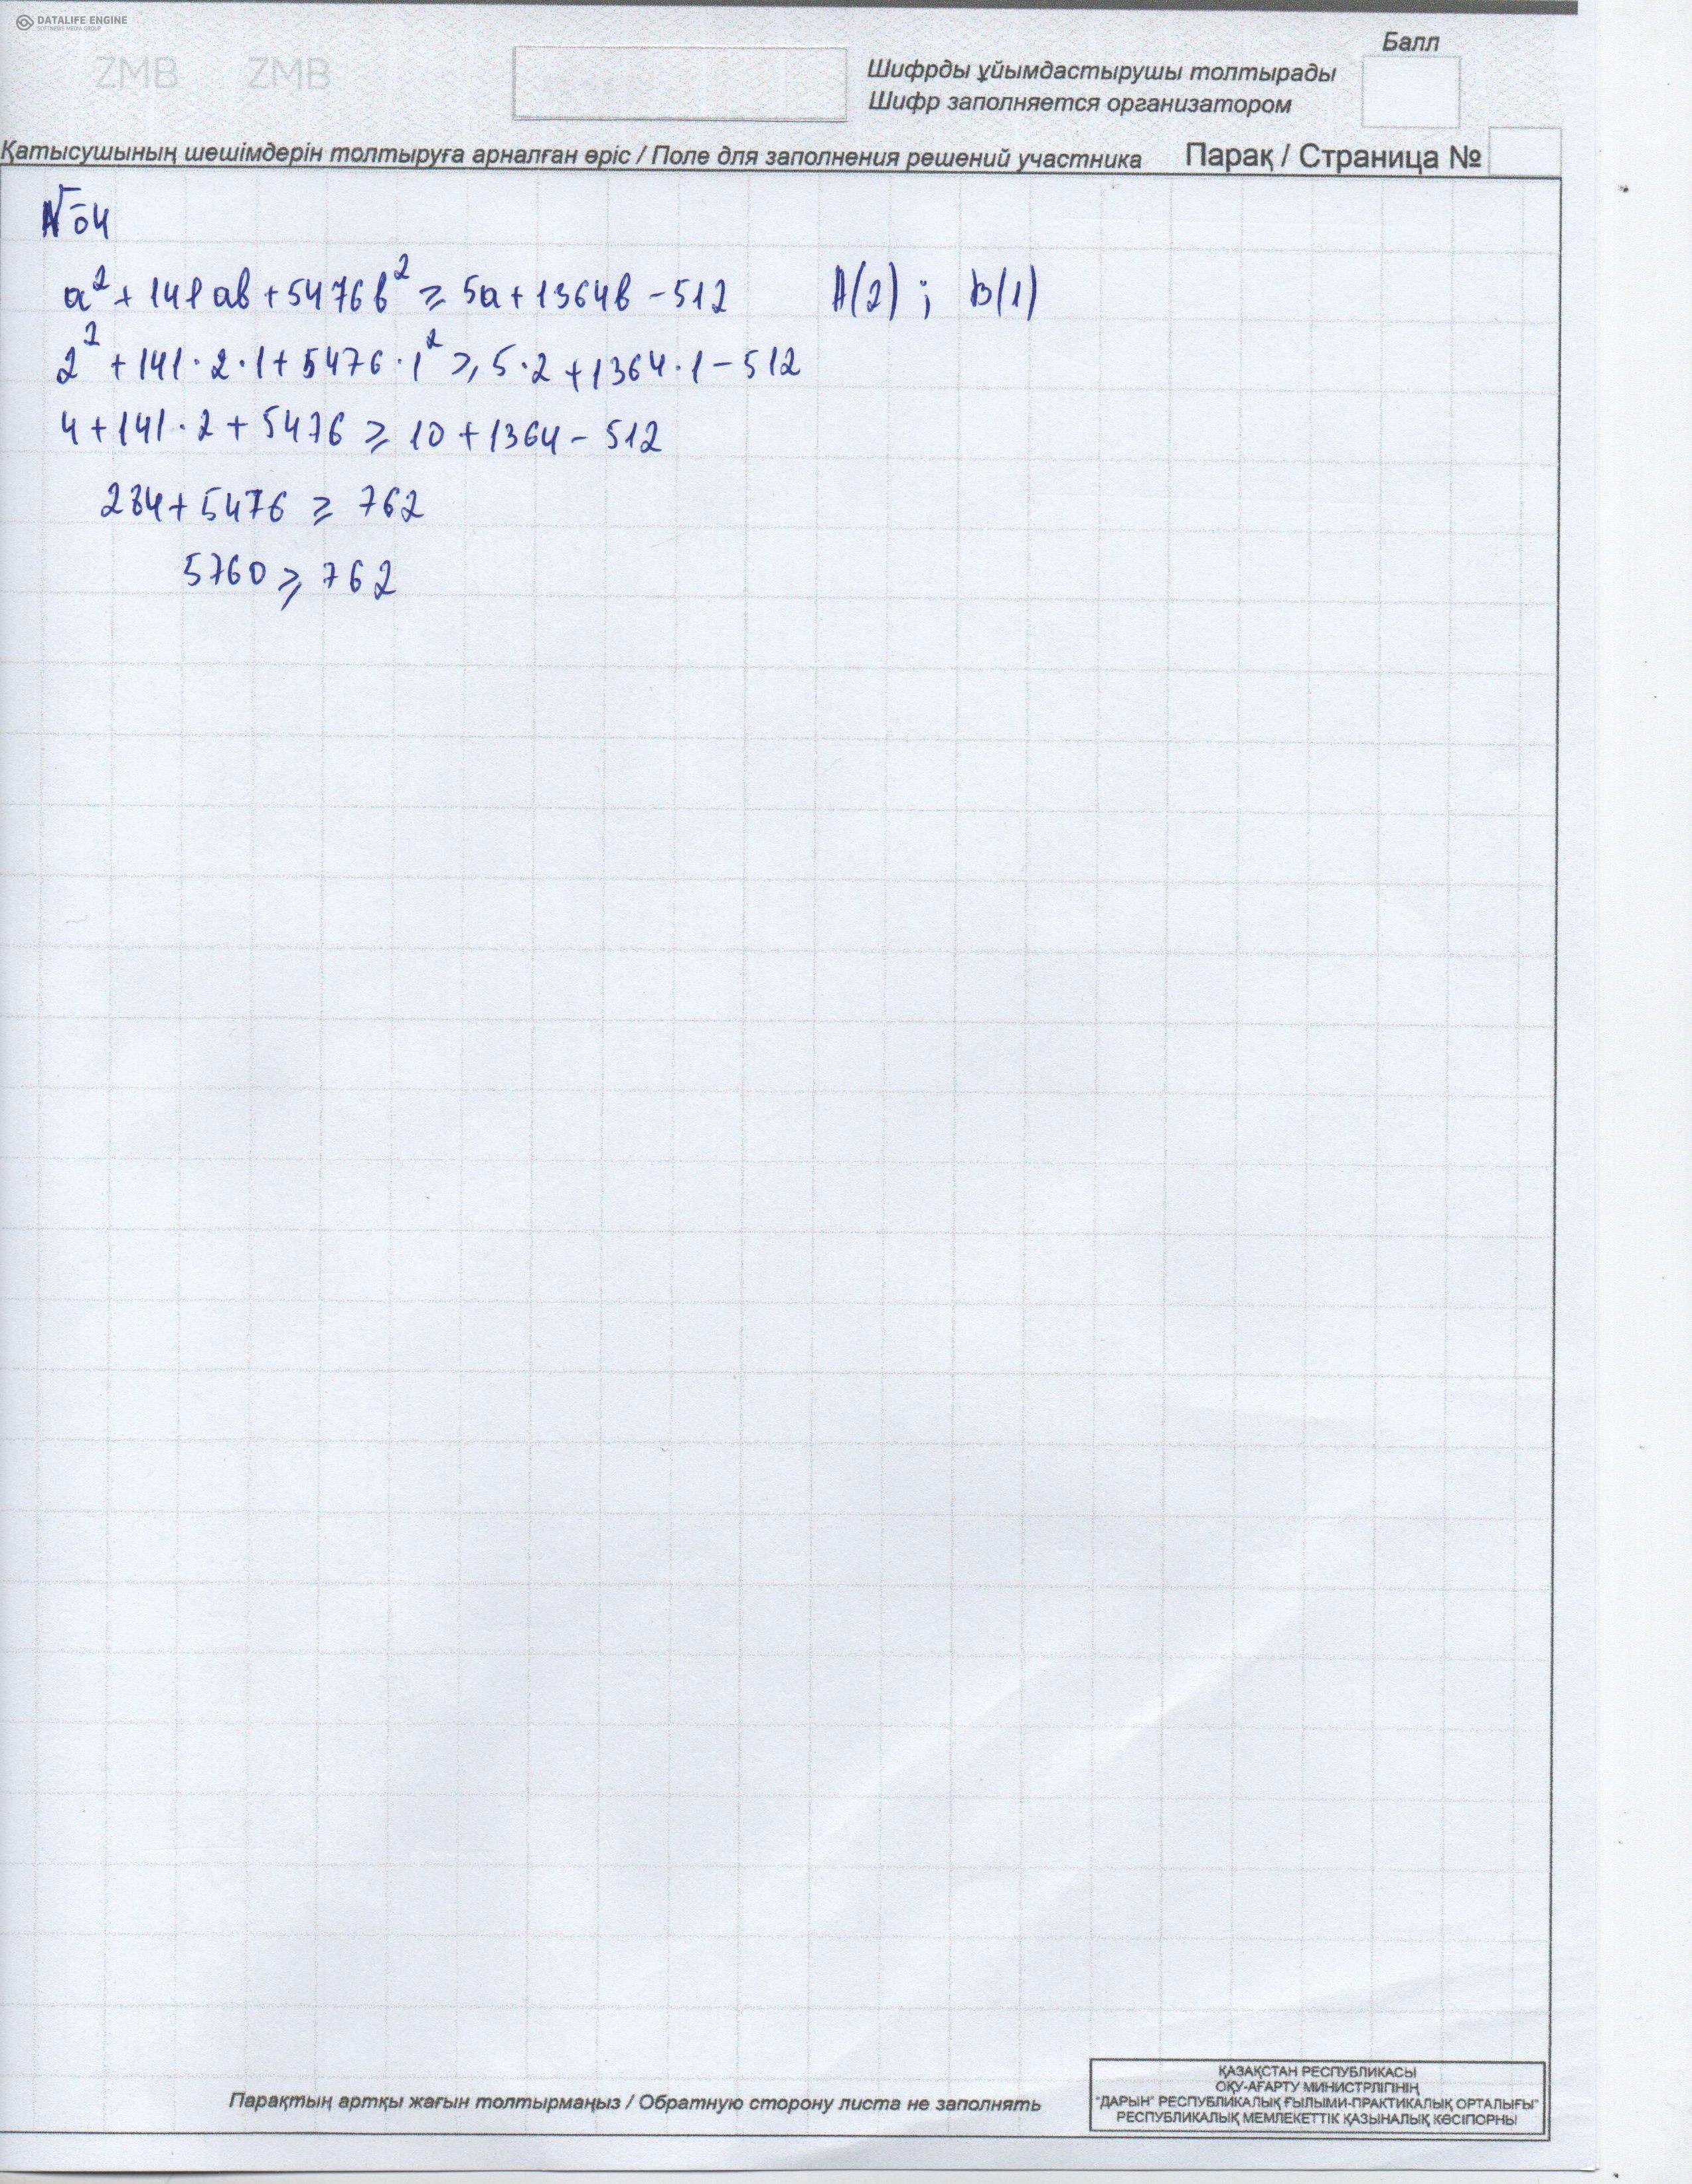 DATALIFE ENGINE
SOFTNEWS MEDIA GROUP
ZMB ZMB
Балл
Шифрды ұйымдастырушы толтырады
Шифр заполняется организатором
Қатысушының шешімдерін толтыруға арналған өріс / Поле для заполнения решений участника Парақ / Страница №
№ 04
a² + 141 ab + 5476 b² ≥ 5a + 1364b - 512 A(2) ; B(1)
2² + 141 · 2 · 1 + 5476 · 1² ≥ 5 · 2 + 1364 · 1 - 512
4 + 141 · 2 + 5476 ≥ 10 + 1364 - 512
284 + 5476 ≥ 762
5760 ≥ 762
Парақтың артқы жағын толтырмаңыз / Обратную сторону листа не заполнять
ҚАЗАҚСТАН РЕСПУБЛИКАСЫ
ОҚУ-АҒАРТУ МИНИСТРЛІГІНІҢ
"ДАРЫН" РЕСПУБЛИКАЛЫҚ ҒЫЛЫМИ-ПРАКТИКАЛЫҚ ОРТАЛЫҒЫ"
РЕСПУБЛИКАЛЫҚ МЕМЛЕКЕТТІК ҚАЗЫНАЛЫҚ КӘСІПОРНЫ